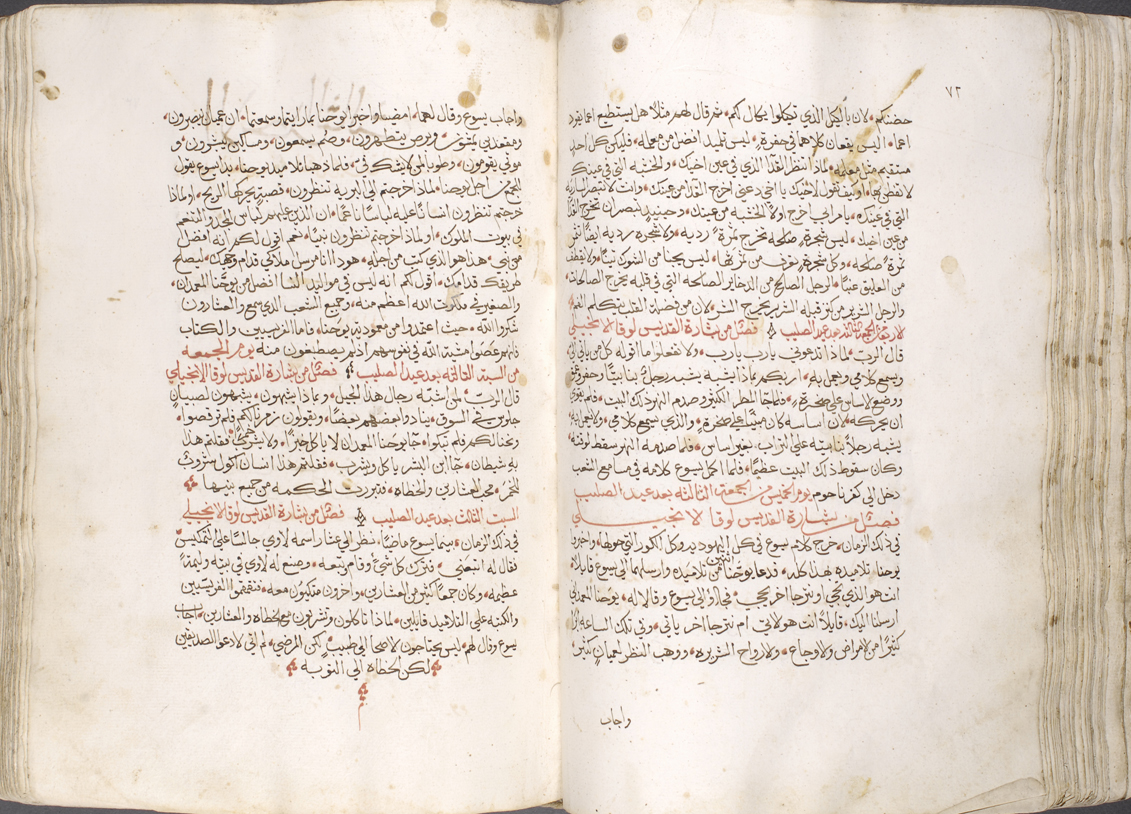 ٧٢
حضنكم ٠ لان بالكيل الذي تكيلوا يكال لكم ٠ ثم قال لهم مثلاً هل يستطيع اعما يقود
اعما ٠ اليس يقعان كلاهما في حفرةٍ ٠ ليس تلميذ افضل من معلمه ٠ فليكن كل احدٍ
مستقيم مثل معلمه ٠ لماذا تنظر القذا الذي في عين اخيك ٠ والخشبه التي في عينك
لا تفطن بها ٠ وكيف تقول لاخيك يا اخي دعني اخرج القذا من عينك ٠ وانت لا تبصر السارية
التي في عينك ٠ يا مرايي اخرج اولاً الخشبه من عينك ٠ وحينيذٍ تبصر ان تخرج القذا
من عين اخيك ٠ ليس شجرةٍ صالحه تخرج ثمرةً رديه ٠ ولا شجره رديه ايضاً تثمر
ثمرةً صالحه ٠ وكل شجرةٍ تعرف من ثمرتها ٠ ليس يجنا من الشوك تيناً ٠ ولا يقطف
من العليق عنباً ٠ الرجل الصالح من الذخاير الصالحه التي في قلبه يخرج الصالحات
والرجل الشرير من كنز قلبه الشرير يخرج الشر ٠ لان من فضلة القلب يتكلم الفم
لاربعا الجمعه الثالثه بعد عيد الصليب فصل من بشارة القديس لوقا الانجيلي
قال الرب ٠ لماذا تدعوني يارب يارب ٠ ولا تفعلوا ما اقوله كل من ياتي الي
ويسمع كلامي ويعمل به ٠ اريكم بماذا يشبه يشبه رجلٌ بنا بيتاً وحفر وعمق
ووضع الاساس على صخرةٍ ٠ فلما جا المطر الكثير وصدم النهر ذلك البيت ٠ فلم يقوا
ان يحركه ٠ لان اساسه كان مبنياً على صخرةٍ ٠ والذي يسمع كلامي ٠ ولا يعمل به
يشبه رجلاً بنا بيته على التراب بغير اساس ٠ فلما صدمه النهر سقط لوقته
وكان سقوط ذلك البيت عظيماً ٠ فلما اكمل يسوع كلامه في مسامع الشعب
دخل الى كفرناحوم يوم الخميس من الجمعه الثالثه بعد عيد الصليب
فصل من بشارة القديس لوقا الانجيلي
في ذلك الزمان ٠ خرج كلام يسوع في كل اليهوديه وكل الكور التي حولها ٠ واخبروا
يوحنا تلاميذه بهذا كله ٠ فدعا يوحنا اثنين من تلاميذه وارسلهما الى يسوع قايلاً ٠
انت هو الذي تجي او نترجا اخر يجي ٠ فجاوا الى يسوع وقالا له ٠ يوحنا المعمداني
ارسلنا اليك ٠ قايلاً انت هو الاتي ام نترجا اخر ياتي ٠ وفي تلك الساعه ابرا
كثيراً من الامراض والاوجاع ٠ والارواح الشريره ٠ ووهب النظر لعميانٍ كثيرٍ
واجاب
واجاب يسوع وقال لهما ٠ امضيا واخبرا يوحنا بما رايتما وسمعتما ٠ ان عميان يبصرون ٠
ومقعدين يمشون ٠ وبرص يتطهرون ٠ وصم يسمعون ٠ ومساكين يبشرون ٠ و
موتى يقومون ٠ وطوبا لمن لا يشك في ٠ فلما ذهبا تلاميذ يوحنا ٠ بدا يسوع يقول
للجمع من اجل يوحنا ٠ لماذا خرجتم الى البريه تنظرون ٠ قصبةٍ يحركها الريح ٠ او لماذا
خرجتم تنظرون انساناً عليه لباساً ناعماً ٠ ان الذين عليهم لباس المجد والتنعم
في بيوت الملوك ٠ او لماذا خرجتم تنظرون نبياً ٠ نعم اقول لكم انه افضل
من نبي ٠ هذا هو الذي كتب من اجله ٠ هوذا انا مرسل ملاكي قدام وجهك ٠ ليصلح
طريقك قدامك ٠ اقول لكم انه ليس في مواليد النسا افضل من يوحنا المعمدان ٠
والصغير في ملكوت الله اعظم منه ٠ وجميع الشعب الذي سمع والعشارون
شكروا الله ٠ حيث اعتمدوا من معمودية يوحنا ٠ فاما الفريسيين والكتاب
فانهم عصوا مشية الله في نفوسهم اذ لم يصطبغون منه يوم الجمعه
من السبت الثالثه بعد عيد الصليب فصل من بشارة القديس لوقا الانجيلي
قال الرب ٠ لمن اشبه رجال هذا الجيل ٠ وبماذا يشبهون ٠ يشبهون لصبيانٍ
جلوس في السوق ٠ ينادوا بعضهم بعضاً ٠ ويقولون زمرنا لكم فلم ترقصوا ٠
ونحنا لكم فلم تبكوا ٠ جا يوحنا المعمدان لا ياكل خبزاً ٠ ولا يشرب خمراً ٠ فقلتم هذا
به شيطان ٠ جا ابن البشر ياكل ويشرب ٠ فقلتم هذا انسان اكول شروب
للخمر ٠ محب العشارين والخطاه ٠ فتبررت الحكمه من جميع بنيها
السبت الثالث بعد عيد الصليب فصل من بشارة القديس لوقا الانجيلي
في ذلك الزمان ٠ بينما يسوع ماضياً ٠ نظر الى عشار اسمه لاوي جالساً على المكس
فقال له اتبعني ٠ فترك كل شيء وقام تبعه ٠ وصنع له لاوي في بيته وليمةً
عظيمه ٠ وكان جمعاً كثير من العشارين ٠ واخرون متكيون معه ٠ فتقمقموا الفريسيين
والكتبه على التلاميذ قايلين ٠ لماذا تاكلون وتشربون مع الخطاه والعشارين ٠ اجاب
يسوع وقال لهم ٠ ليس يحتاجون الاصحا الى طبيبٍ لكن المرضى ٠ لم اتي لادعو الصديقين
لكن الخطاه الى التوبه